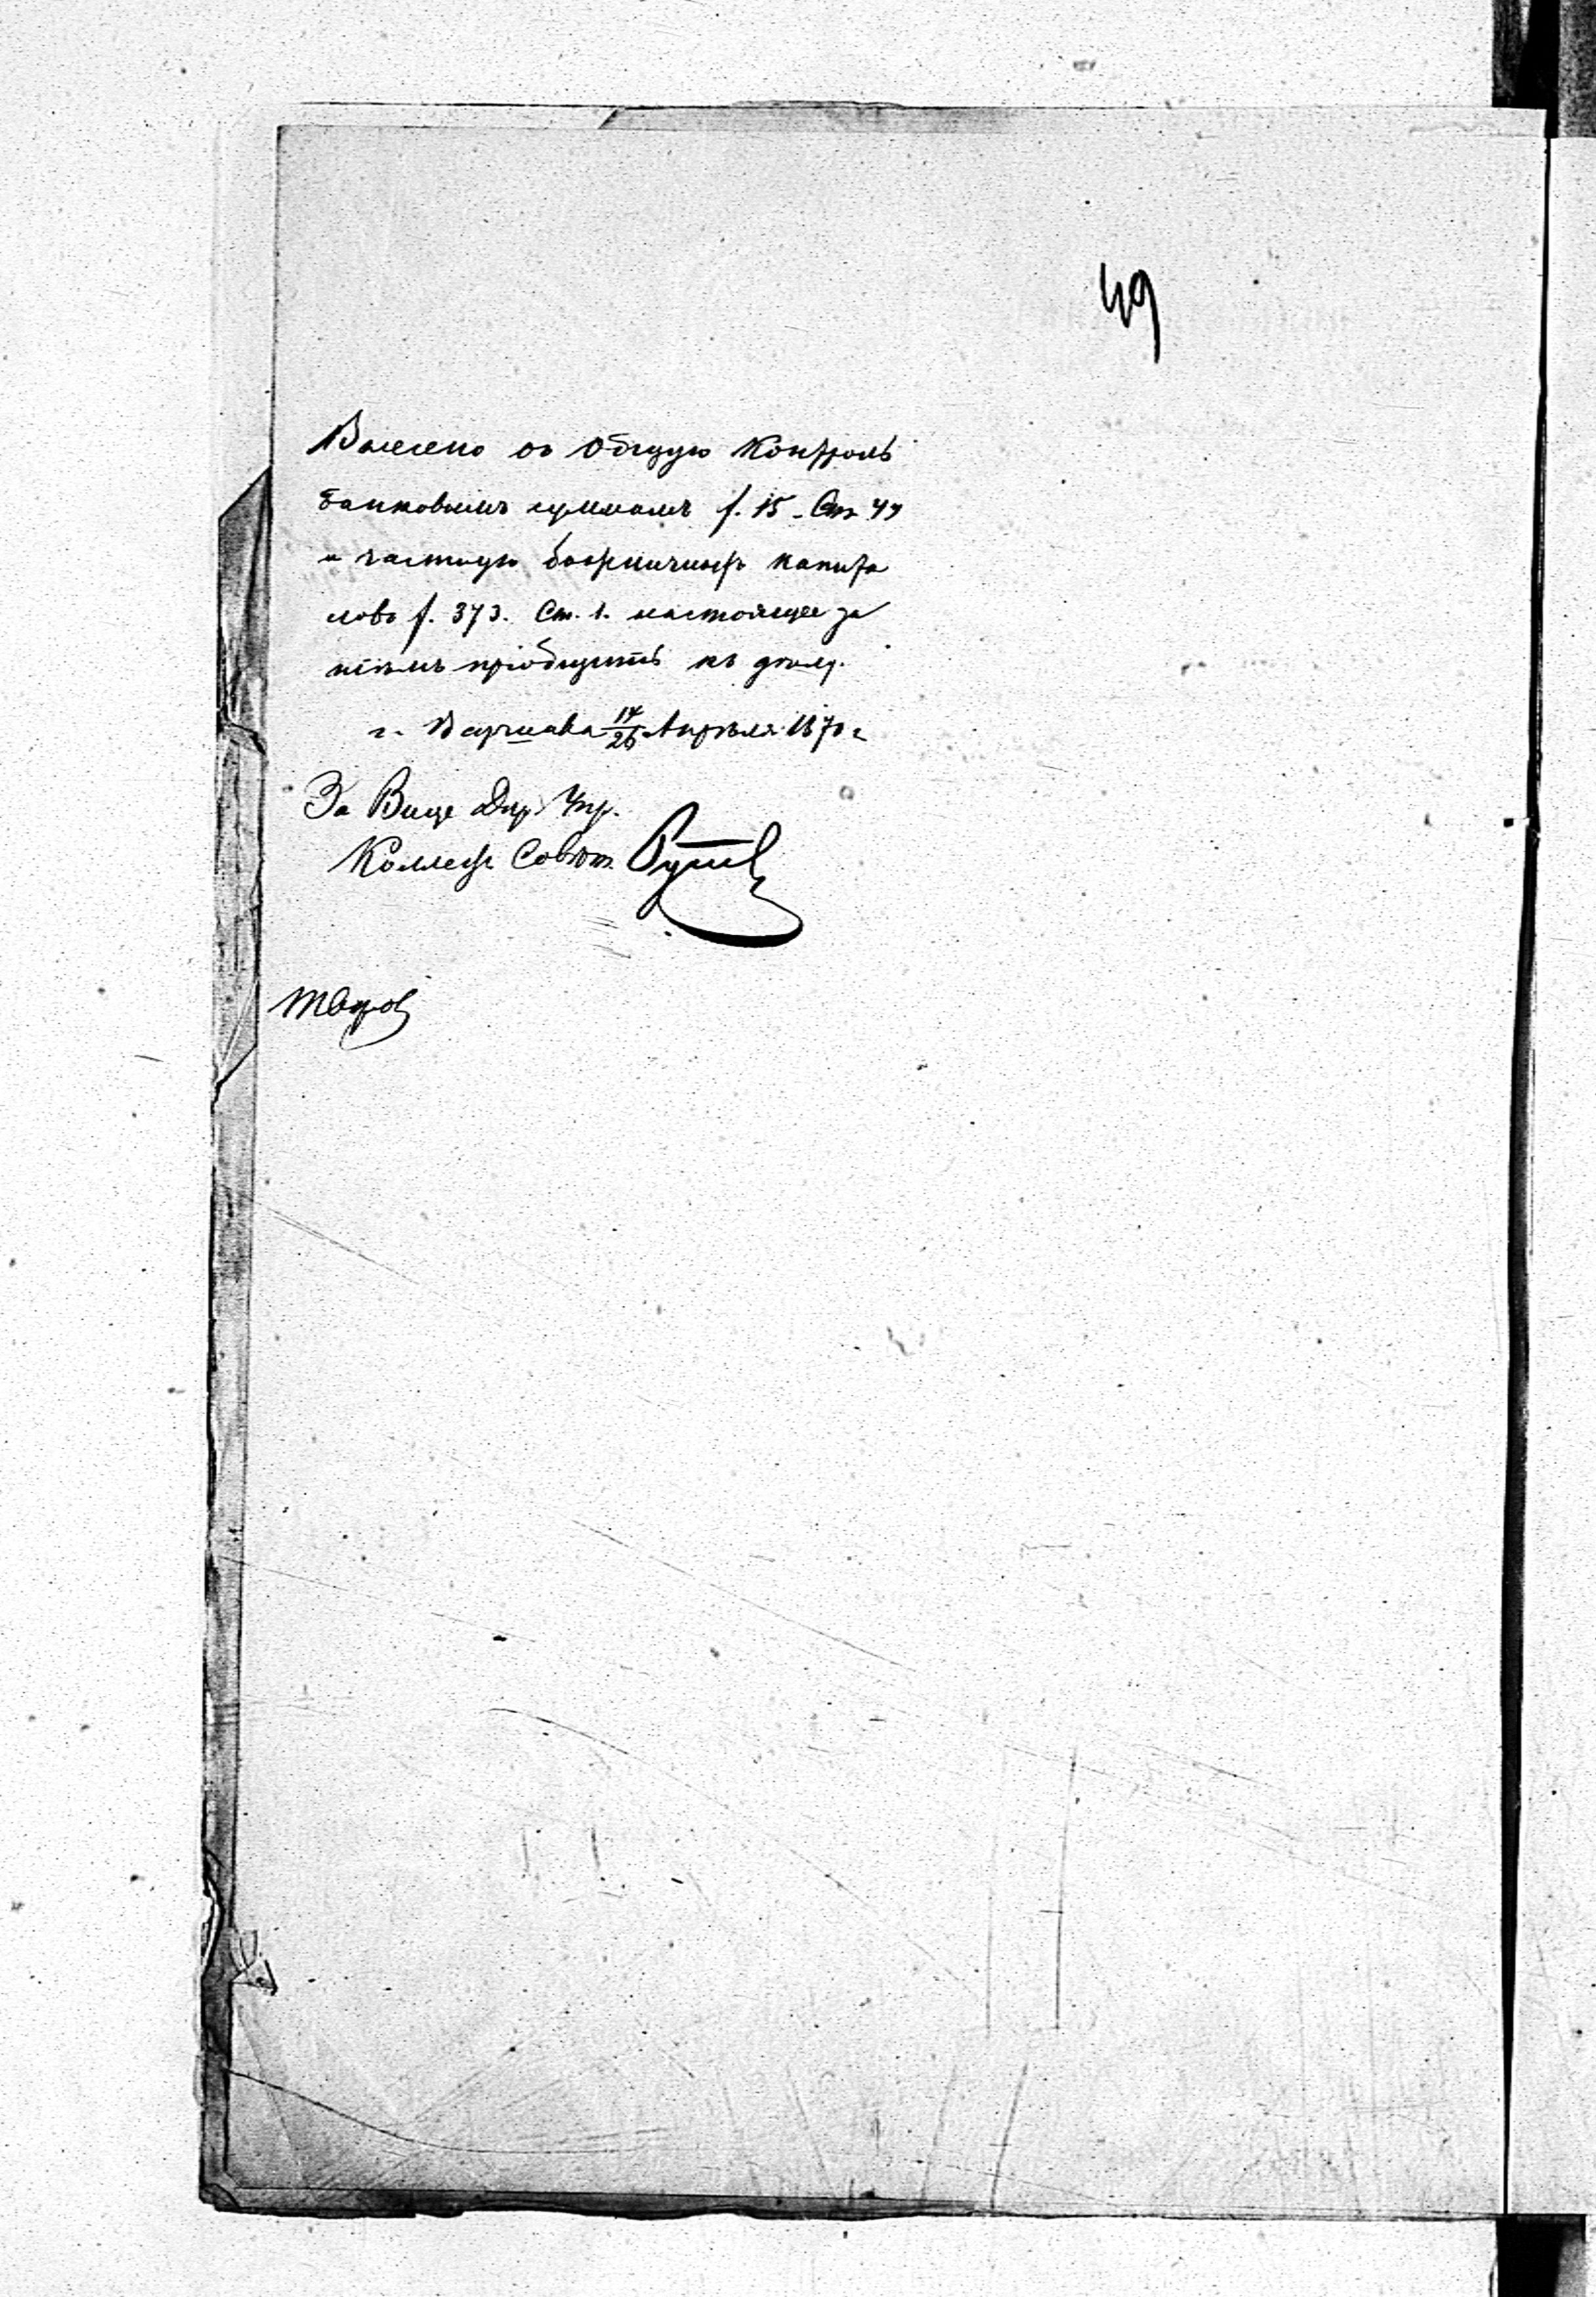 49
Внесено въ Общую Контроль
банковымъ суммамъ f. 15 - Ст.
и частную капита
ловъ f. 373. Ст. 1. настоящее за
тѣмъ пріобщить къ дѣлу.
г. Варшава 14/26 Апрѣля 1870 г
За Вице Дир. Упр.
Коллеж Совѣт.